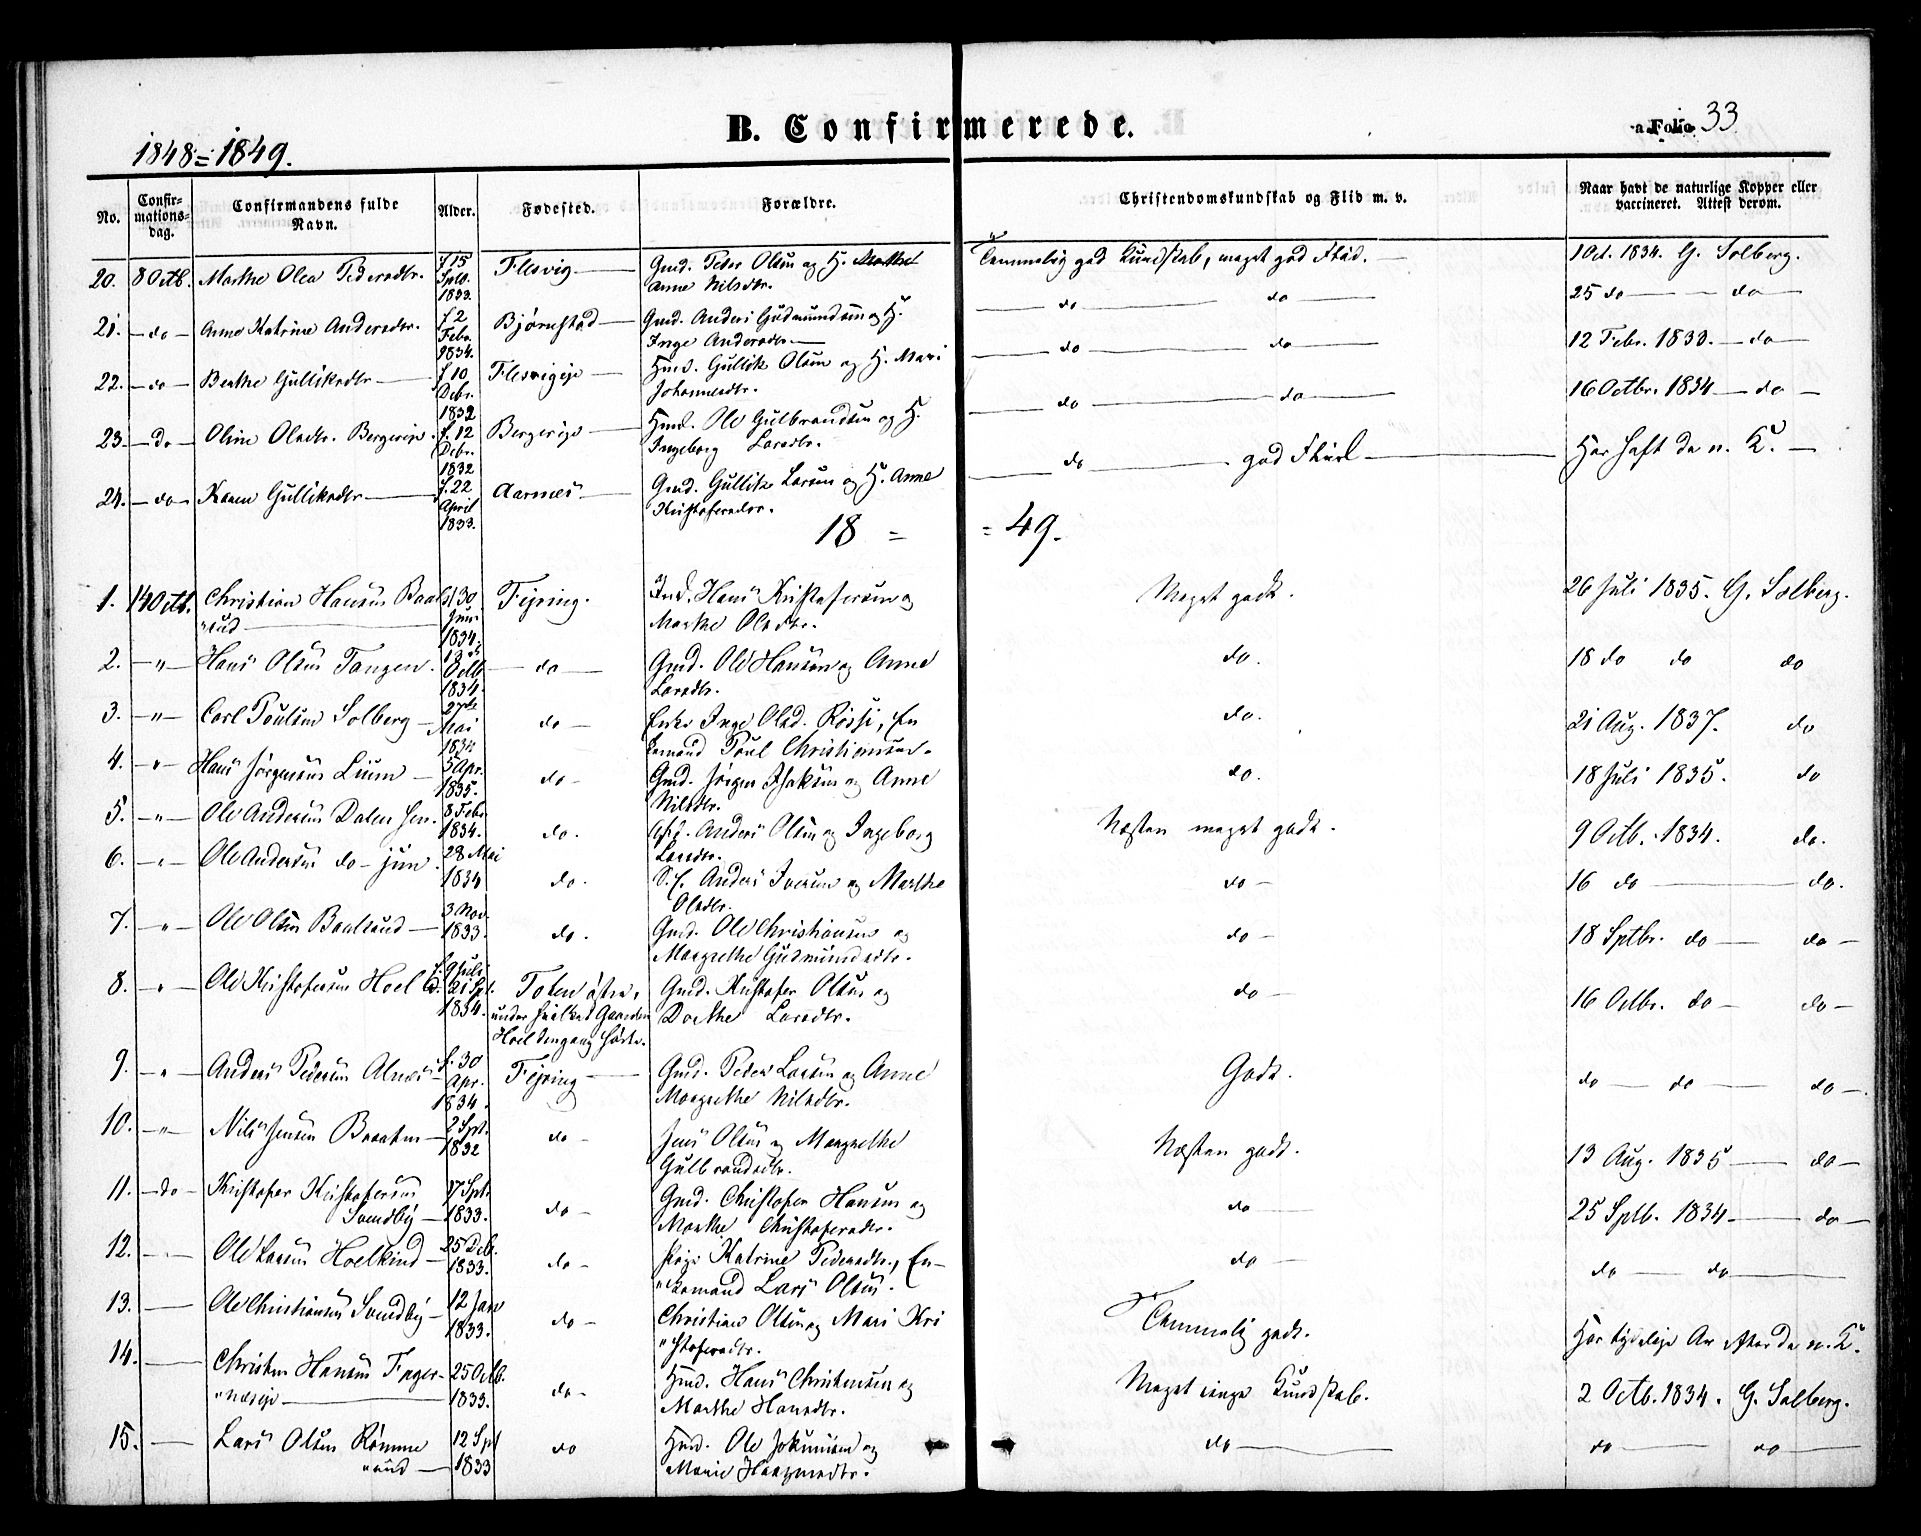 1848=1849.
B. Confirmerede.
Folio 33
No.
Confir-
mations-
dag.
Confirmandens fulde
Navn.
Alder.
Fødested.
Forældre.
Christendomskundskab og Flid m. v.
Naar havt de naturlige Kopper eller
vaccineret. Attest derom.
20. 8 Octb. Marthe Olea Pedersdtr. f. 15 Sptb. 1833. Flesvig Gmd. Peder Olsen og H. Anne Nilsdtr. Temmelig god Kundskab, meget god Flid. 1 Oct. 1834. G. Solberg.
21. do Anne Katrine Andersdtr. f. 2 Febr. 1834. Bjørnstad Gmd. Anders Gudmundsen og H. Inge Andersdtr. do do 25 do do
22. do Berthe Gulliksdtr f. 10 Debr. 1832 Flesvigeje Hmd. Gullik Olsen og H. Mari Johannesdtr. do do 12 Febr. 1833. do
23. do Oline Olsdtr. Bergereje. f. 12 Debr. 1832 Bergereje Hmd. Ole Gulbrandsen og H. Ingeborg Larsdtr. do do 16 Octbr. 1834 do
24. do Karen Gulliksdtr f. 22 April 1833. Aarnes Gmd. Gullik Larsen og H. Anne Kristofersdtr. do god Flid Har haft de n. K.
18 = = 49.
1. 14 Octb. Christian Hansen Baals"rud 30 Juni 1834. Fejring. Hans Kristofersen og Marthe Olsdtr. Meget godt. 26 Juli 1835. G. Solberg.
2. " Hans Olsen Tangen. Octb 1834. do Gmd. Ole Hansen og Anne Larsdtr. do. 18 do do do
3. " Carl Poulsen Solberg 27de Mai 1834 do Enke Inge Olsd. Røssi, En kemand Poul Christiansen. do. 21 Aug. 1837. do
4. " Hans Jørgensen Lium 5 Apr. 1835. do Gmd. Jørgen Isaksen og Anne Nilsdtr. do. 18 Juli 1835. do
5. " Ole Andersen Dalen sen. 8 Febr. 1834. do. Anders Olsen og Ingeborg Larsdtr. Næsten meget godt. 9 Octb. 1834. do.
6. " Ole Andersen do jun. 28 Mai 1834 do. Anders Iversen og Marthe Olsdtr. do 16 do do.
7. " Ole Olsen Baalsrud 3 Nov. 1833. do. Gmd. Ole Christiansen og Margrethe Gudmundsdtr. do 18 Sptbr. do do
8. " Ole Kristofersen Hoel f. 9 Juli d. 21 Spt. 1834. Toten østre, under hvilket Gaarden Hoel dengang hørte. Gmd. Kristofer Olsen og Dorthe Larsdtr. do 16 Octbr. do do
9. " Anders Pedersen Alnæs f. 30 Apr. 1834. Fejring Gmd. Peder Larsen og Anne Margrethe Nilsdtr. Godt. do do do
10. " Nils Jensen Braaten 2 Spt. 1832 do Jens Olsen og Margrethe Gulbrandsdtr. Næsten godt. 13 Aug. 1835 do
11. do Kristofer Kristofersen Sundby 17 Spt. 1833. do Gmd. Christofer Hansen og Marthe Christofersdtr. do 25 Sptb. 1834 do
12. Ole Larsen Hoelkind 25 Deb. 1833. do Pige Katrine Pedersdtr., En"kemand Lars Olsen. do do do
13. Ole Christiansen Sundby 12 Jan 1833. do Christian Olsen og Mari Kri"stofersdtr. Temmelig godt. Har tydelige Ar efter de n. K.
14. Christen Hansen Finger"næseje 25 Octb. 1833. do Hmd. Hans Christensen og Marthe Hansdtr. Meget ringe Kundskab. 2 Octb. 1834. G. Solberg.
15. Lars Olsen Rømme"rud 12 Spt 1833 do Hmd. Ole Jokumsen og Marie Haagensdtr. do do do